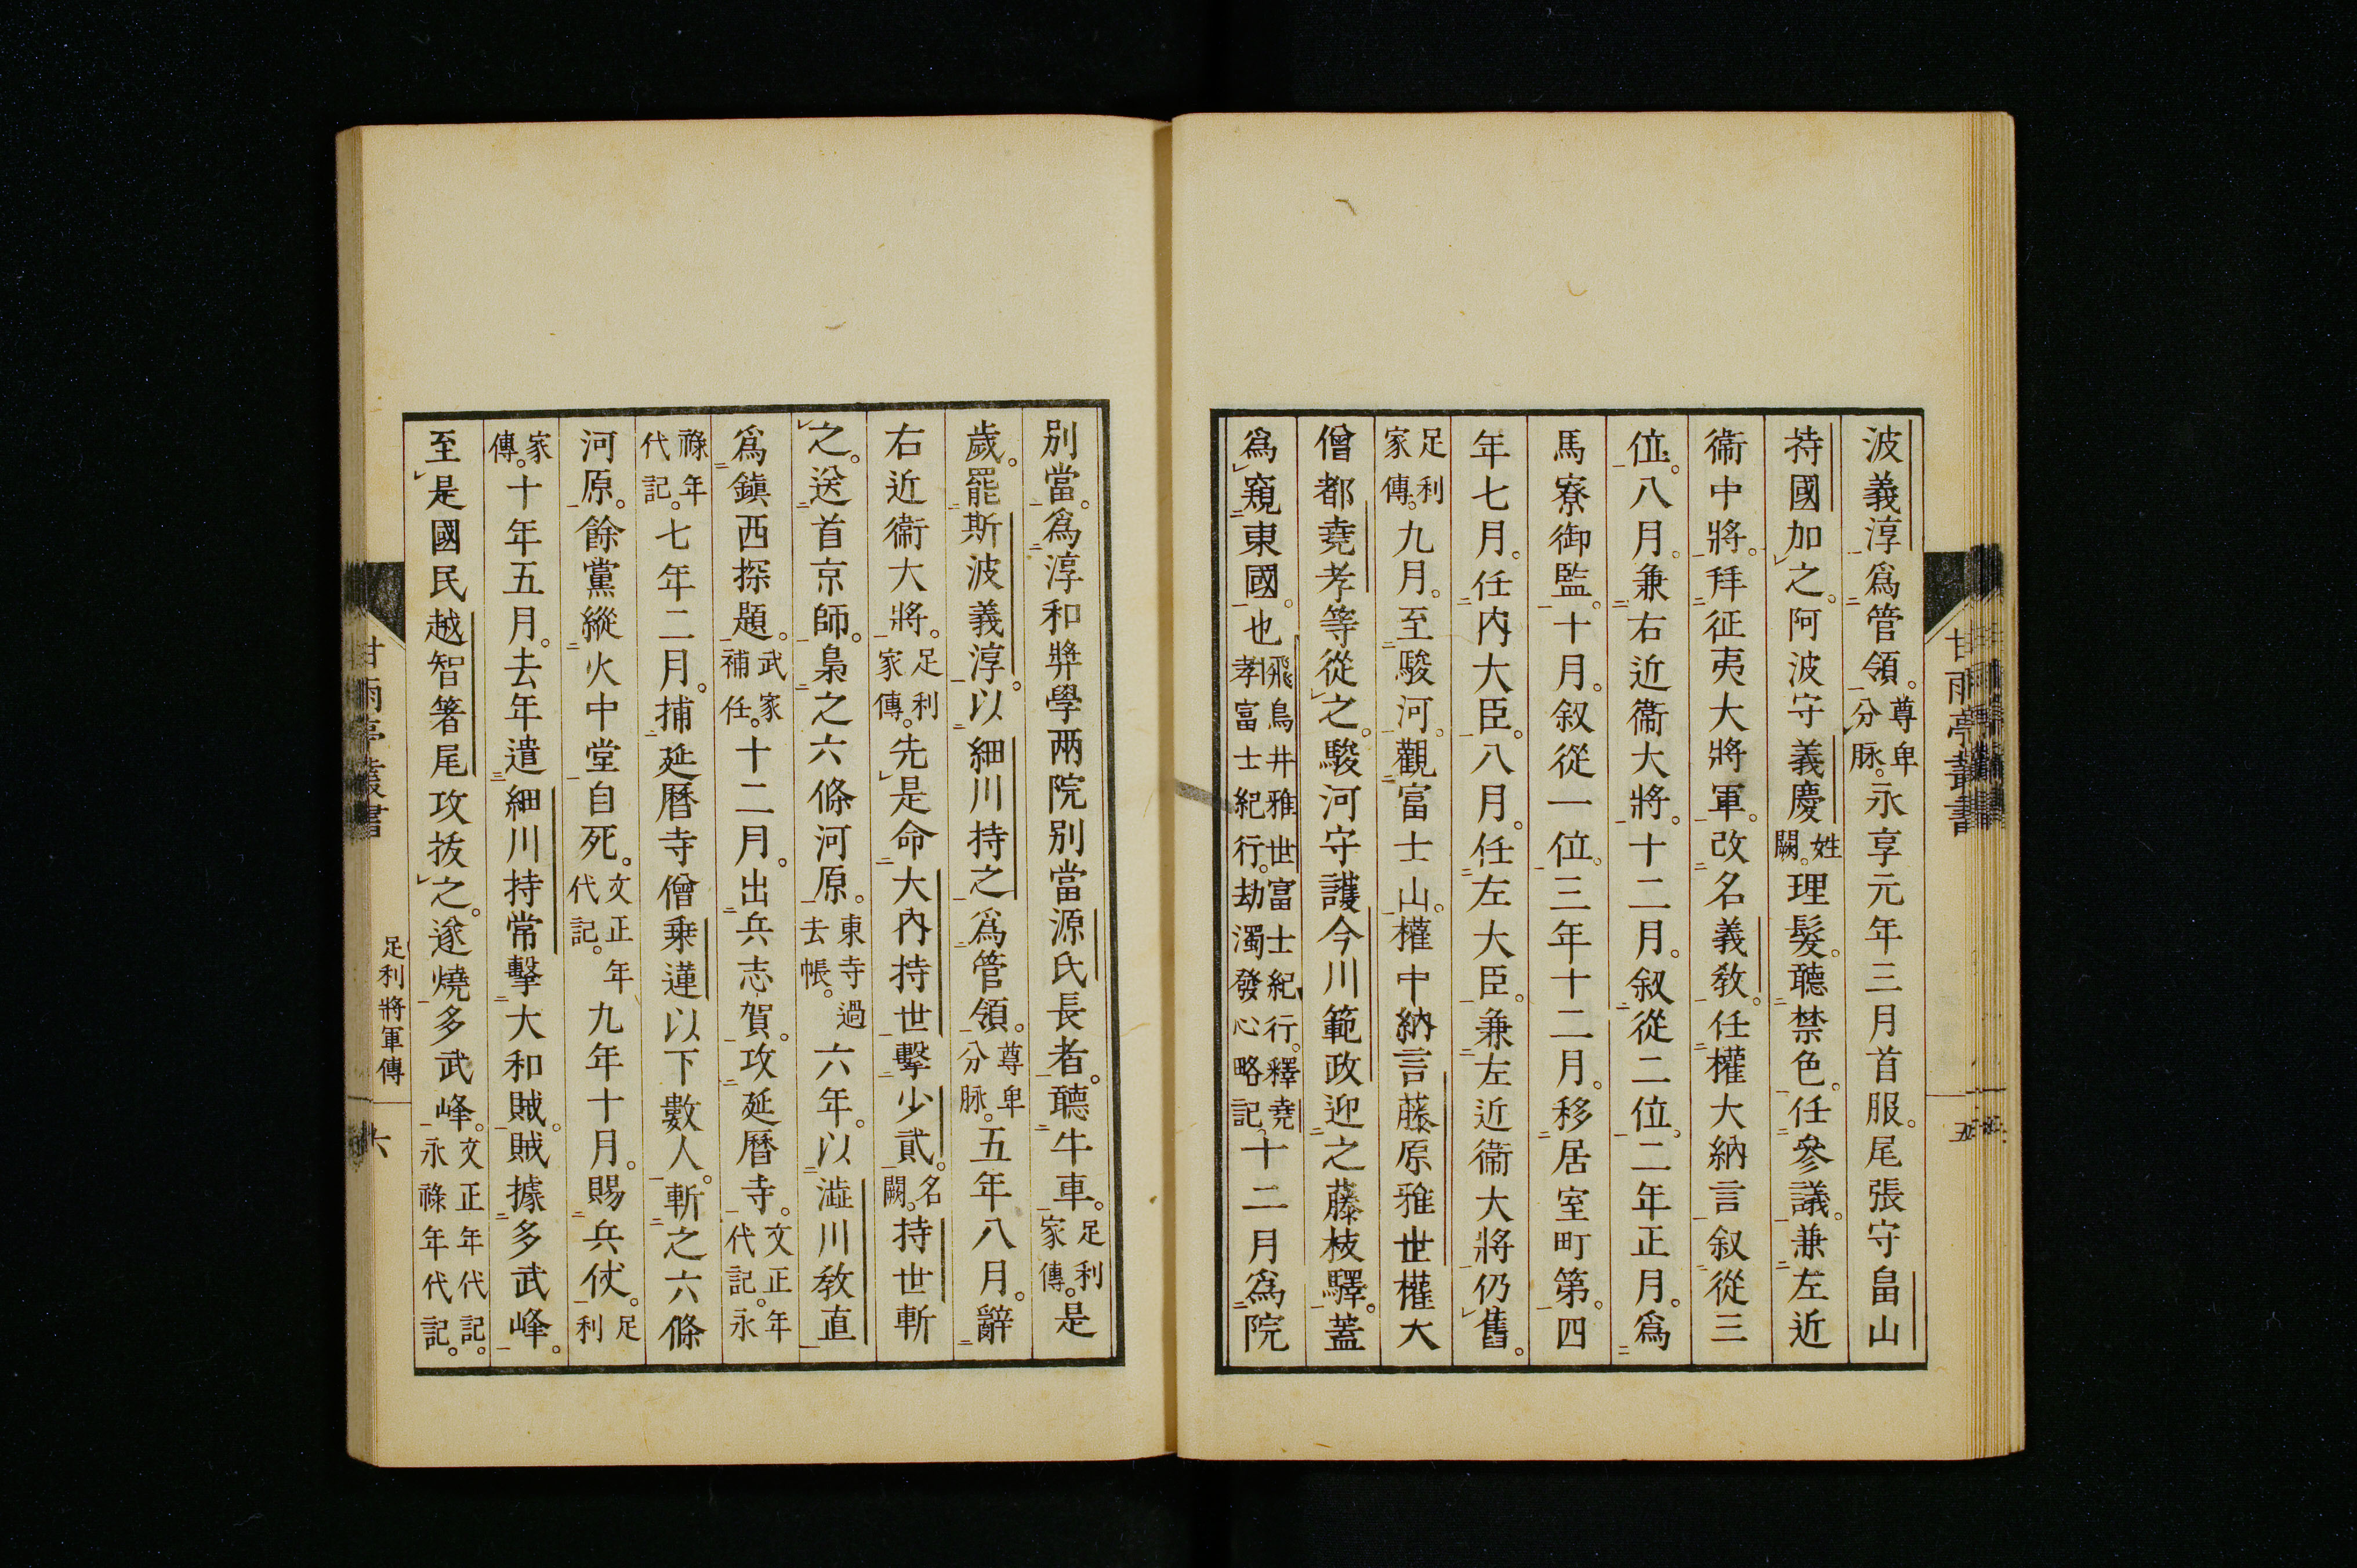 波義淳爲管領。尊卑分脉。永享元年三月首服。尾張守畠山
持國加之。阿波守義慶姓闕。理髮。聽禁色。任參議。兼左近
衞中將。拜征夷大將軍。改名義敎。任權大納言叙從三
位。八月。兼右近衞大將。十二月。叙從二位。二年正月。爲
馬寮御監。十月。叙從一位。三年十二月。移居室町第。四
年七月。任内大臣。八月。任左大臣。兼左近衞大將仍舊。
足利家傳。九月。至駿河。觀富士山。權中納言藤原雅世權大
僧都堯孝等從之。駿河守護今川範政迎之藤枝驛。蓋
爲窺東國。也飛鳥井雅世富士紀行。釋堯孝富士紀行。劫濁發心略記。十二月爲院
甘雨亭叢書
五
別當。爲淳和奬學两院別當源氏長者。聽牛車。足利家傳。是
歲。罷斯波義淳。以細川持之爲管領。尊卑分脉。五年八月。辭
右近衞大將。足利家傳。先是命大內持世擊少貳。名闕。持世斬
之。送首京師。梟之六條河原。東寺過去帳。六年。以澁川敎直
爲鎮西探題。武家補任。十二月。出兵志賀。攻延曆寺。文正年代記。永
祿年代記。七年二月。捕延曆寺僧乗蓮以下數人。斬之六條
河原。餘黨縱火中堂自死。文正年代記。九年十月。賜兵仗。足利
家傳。十年五月。去年遣細川持常擊大和賊。賊據多武峰。
至是國民越智箸尾攻拔之。遂燒多武峰。文正年代記。永祿年代記。
甘雨亭叢書
足利將軍傳
六